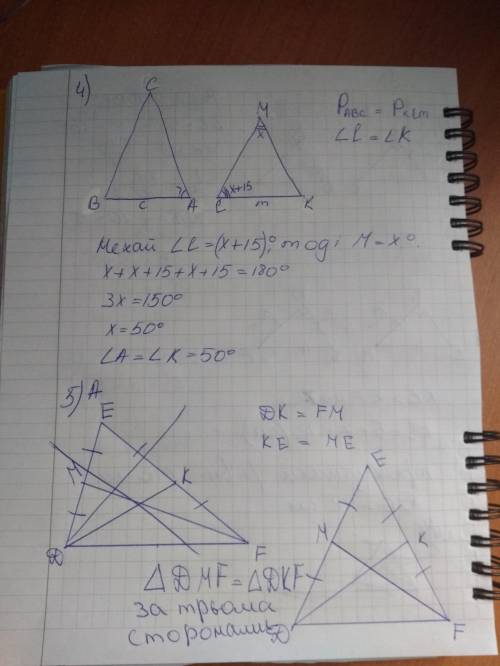 4)
C
B
c
A
M
x
x+15
L
m
K
P_ABC = P_KLM
∠L = ∠K
Нехай ∠L = (x+15)°, тоді M = x°.
x+x+15+x+15=180°
3x=150°
x=50°
∠A=∠K=50°
5) A
E
M
K
D
F
DK = FM
KE = ME
E
M
K
D
F
△DMF = △DKF
за трьома
сторонами